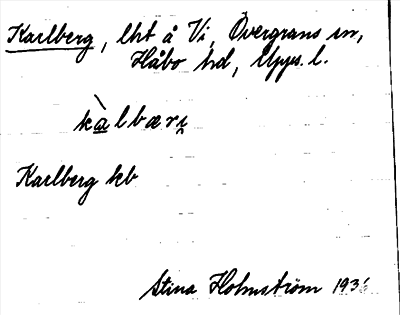 Karlberg, lht å Vi, Övergrans sn,
Håbo hd, Upps. l.
kàlbæri̯
Karlberg kb
Stina Holmström 1936